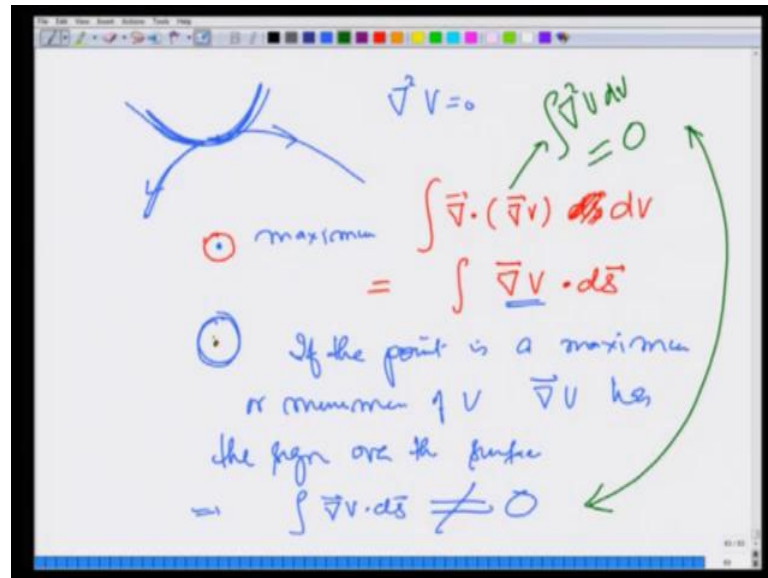 File Edit View Insert Actions Tools Help
∇² V = 0
∫ ∇² V dv
= 0
∫ ∇⃗ · (∇⃗ V) dV
maximum
= ∫ ∇⃗ V · ds⃗
If the point is a maximum
or minimum of V ∇⃗ V has
the sign over the surface
⇒ ∫ ∇⃗ V · ds⃗ ≠ 0